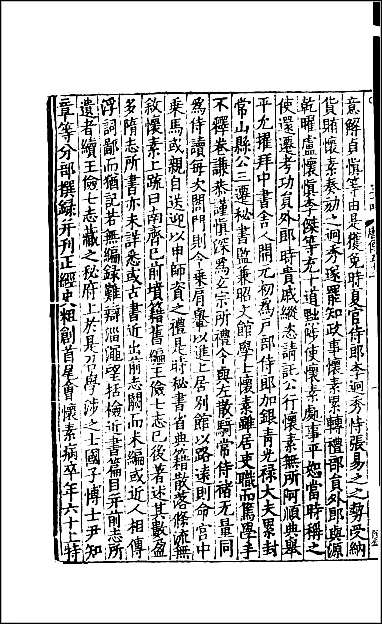 意解貞慎等由是獲免時夏官侍郎李迥秀恃張易之之勢受納
貨賄懷素奏劾之迥秀遂罷知政事懷素累轉禮部員外郎與源
乾曜盧懷慎李傑等充十道黜陟使懷素處事平恕當時稱之
使還遷考功員外郎時貴戚縱恣請託公行懷素無所阿順典舉
平允擢拜中書舍人開元初為戶部侍郎加銀青光祿大夫累封
常山縣公三遷秘書監兼昭文館學士懷素雖居吏職而篤學手
不釋卷謙恭謹慎深為玄宗所禮令與左散騎常侍褚无量同
為侍讀每次閤門則令乘肩輿以進上居別館以路遠則命宮中
乘馬或親自送迎以申師資之禮是時秘書省典籍散落條流無
敘懷素上疏曰南齊已前墳籍舊編王儉七志已後著述其數盈
多隋志所書亦未詳悉或古書近出前志闕而未編或近人相傳
浮詞鄙而猶記若無編錄難辯淄澠望括檢近書篇目并前志所
遺者續王儉七志藏之秘府上於是召學涉之士國子博士尹知
章等分部撰錄并刊正經史粗創首尾會懷素病卒年六十上特